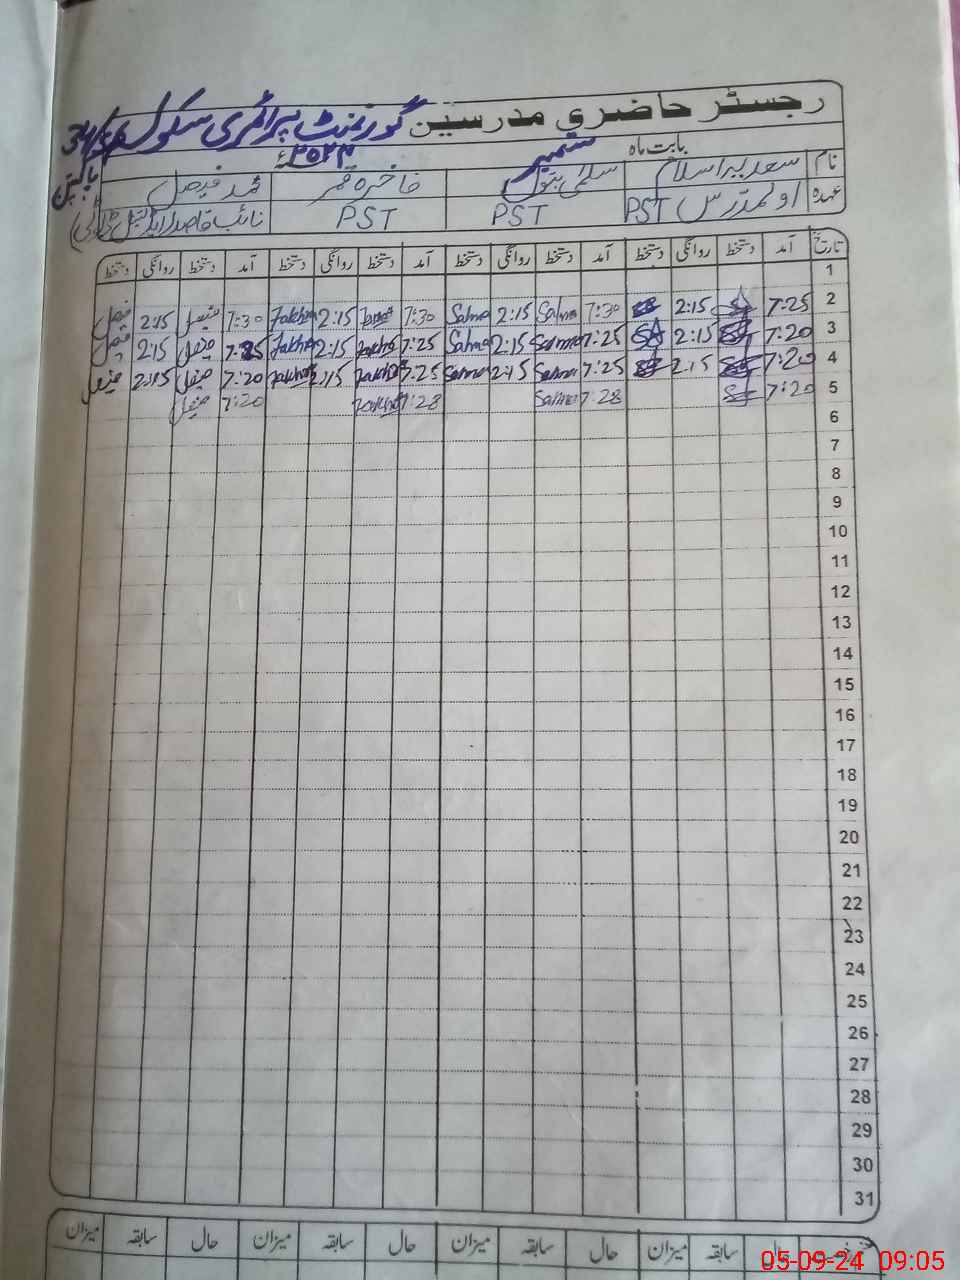 رجسٹر حاضری مدرسین گورنمنٹ پرائمری سکول
بابت ماہ ستمبر ۲۰۲۴ء
نام سعدیہ اسلام سلمیٰ بتول فاخرہ قمر محمد فیصل
عہدہ اول مدرس PST PST PST نائب قاصد
تاریخ آمد دستخط روانگی دستخط آمد دستخط روانگی دستخط آمد دستخط روانگی دستخط آمد دستخط روانگی دستخط
1
2 7:25 2:15 7:30 Salma 2:15 Salma 7:30 2:15 Fakhra 7:30 فیصل 2:15 فیصل
3 7:20 2:15 7:25 Salma 2:15 Salma 7:25 Fakhra 2:15 Fakhra 7:25 فیصل 2:15 فیصل
4 7:20 2:15 7:25 Salma 2:15 Salma 7:25 Fakhra 2:15 Fakhra 7:20 فیصل 2:15 فیصل
5 7:20 7:28 Salma 7:28 Fakhra 7:20 فیصل
6
7
8
9
10
11
12
13
14
15
16
17
18
19
20
21
22
23
24
25
26
27
28
29
30
31
حال سابقہ میزان حال سابقہ میزان حال سابقہ میزان حال سابقہ میزان
05-09-24 09:05